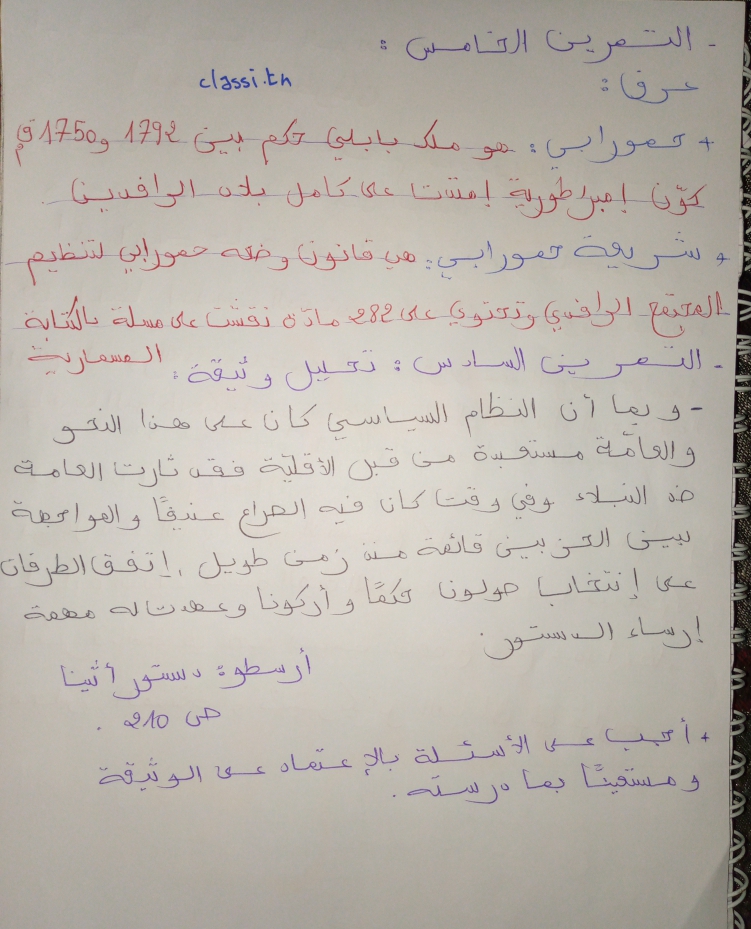 - التمرين الخامس :
classi.tn
عرف :
+ حمورابي : هو ملك بابلي حكم بين 1792 و 1750 ق م
كوّن إمبراطورية إمتدت على كامل بلاد الرافدين .
+ شريعة حمورابي : هي قانون وضعه حمورابي لتنظيم
المجتمع الرافدي وتحتوي على 282 مادة نقشت على مسلة بالكتابة
المسمارية
- التمرين السادس : تحليل وثيقة :
- وبما أن النظام السياسي كان على هذا النحو
والعامّة مستعبدة من قبل الأقليّة فقد ثارت العامة
ضد النبلاء وفي وقت كان فيه الصراع عنيفًا والمواجهة
بين الحزبين قائمة منذ زمن طويل ، إتفق الطرفان
على إنتخاب صولون حكمًا وأركونا وعهدت له مهمة
إرساء الدستور.
أرسطو، دستور أثينا
ص 210 .
+ أجب على الأسئلة بالإعتماد على الوثيقة
ومستعينًا بما درسته .